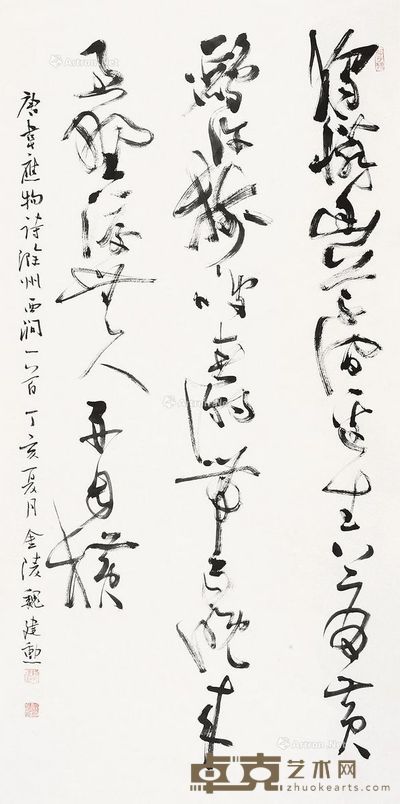 獨憐幽草澗邊生上有黄
鸝深樹鳴春潮帶雨晚來
急野渡無人舟自横
唐韋應物詩滁州西澗一首 丁亥夏月金陵魏建勳
卓克艺术网
zhuokearts.com